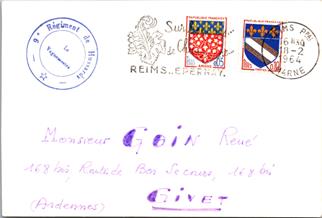 6e Régiment de Hussards
Le
Vaguemestre
Sur
de
REIMS_EPERNAY.
REPUBLIQUE FRANÇAISE
0,05
AMIENS
REPUBLIQUE FRANÇAISE
TROYES
16H30
18-2
1964
MARNE
Monsieur GOIN René
168 bis, Route de Bon Secours, 168 bis
(Ardennes) GIVET